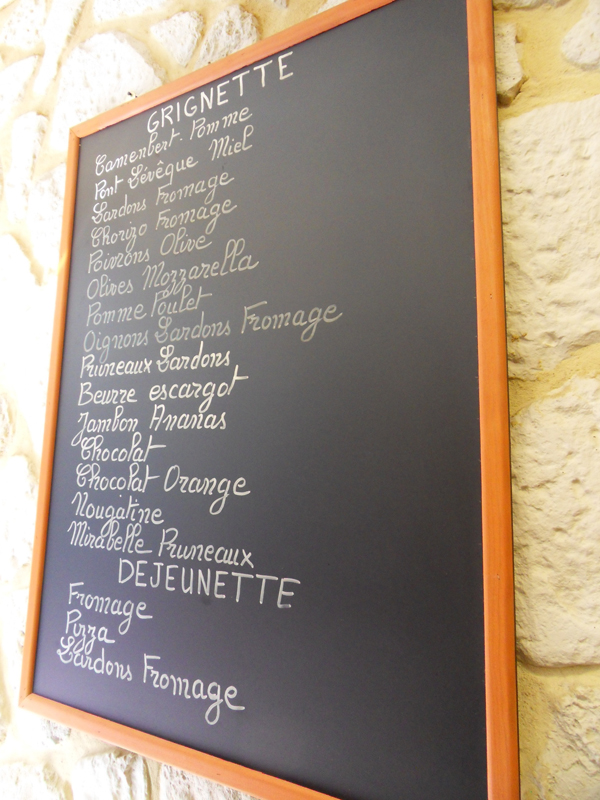 GRIGNETTE
Camenbert. Pomme
Pont Lévêque Miel
Lardons Fromage
Chorizo Fromage
Poivrons Olive
Olives Mozzarella
Pomme Poulet
Oignons Lardons Fromage
Pruneaux Lardons
Beurre escargot
Jambon Ananas
Chocolat
Chocolat Orange
Nougatine
Mirabelle Pruneaux
DEJEUNETTE
Fromage
Pizza
Lardons Fromage